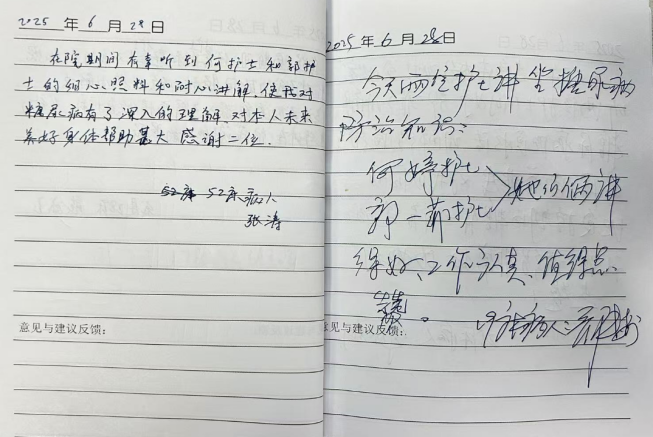 2025 年 6 月 28 日
在院期间有幸听到何护士和郭护
士的细心照料和耐心讲解,使我对
糖尿病有了深入的理解,对本人未来
养好身体帮助甚大 感谢二位.
52床病人
张涛
意见与建议反馈:
2025 年 6 月 28 日
今天两位护士讲 糖尿病
防治知识:
何婷护士
郭一茹护士
她们俩讲
得好、工作认真、值得点
赞。
病人:
意见与建议反馈: